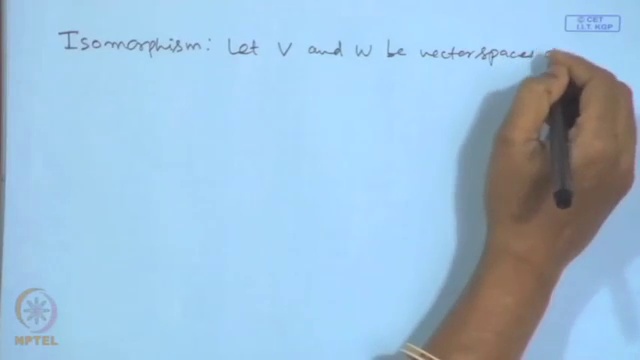 © CET
I.I.T. KGP
Isomorphism: Let V and W be vector spaces
NPTEL